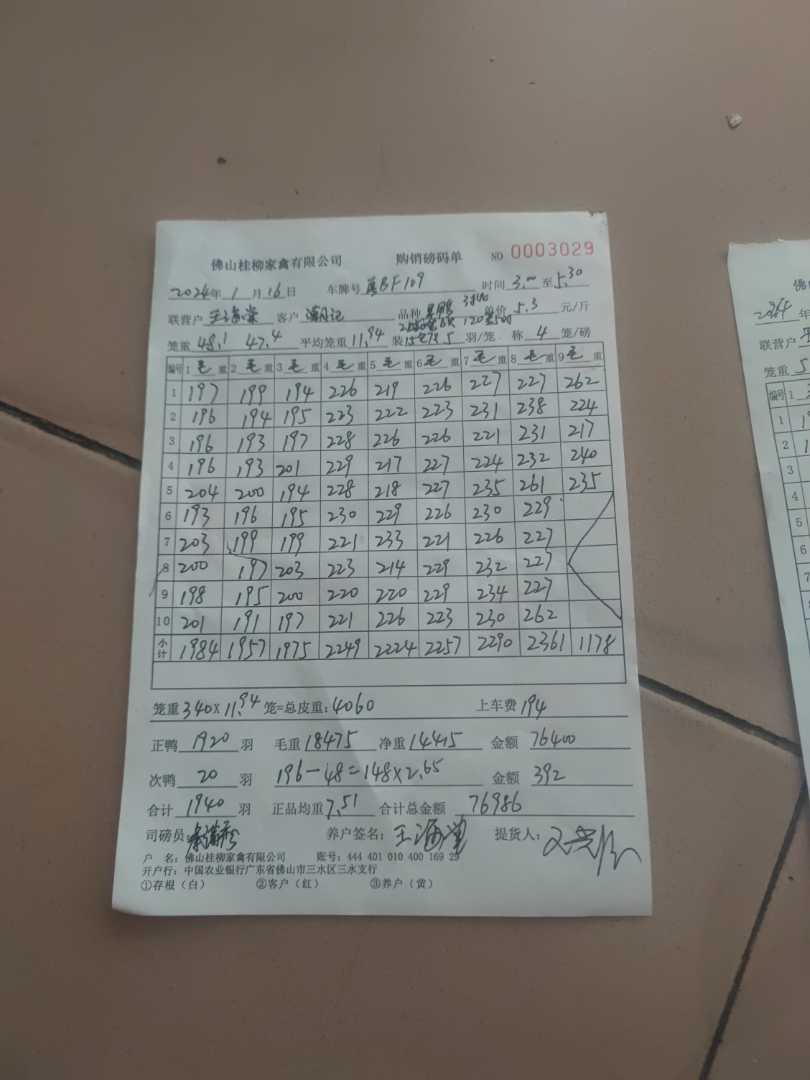 佛山桂柳家禽有限公司 购销磅码单 NO 0003029
2024年 1 月 16 日 车牌号 BF109 时间 3.00 至 5.30
联营户 王海棠 客户 潮记 品种 单价 5.3 元/斤
笼重 48.1 47.4 平均笼重 11.94 装 5 羽/笼 称 4 笼/磅
编号 1 毛 重 2 毛 重 3 毛 重 4 毛 重 5 毛 重 6 毛 重 7 毛 重 8 毛 重 9 毛 重
1 197 199 194 226 219 226 227 227 262
2 196 194 195 223 222 223 231 238 224
3 196 193 197 228 226 226 221 231 217
4 196 193 201 229 217 227 224 232 240
5 204 200 194 228 218 227 235 261 235
6 193 196 195 230 229 226 230 229
7 203 199 199 221 233 221 226 227
8 200 197 203 223 214 229 232 227
9 198 195 200 220 220 229 234 227
10 201 191 197 221 226 223 230 262
小计 1984 1957 1975 2249 2224 2257 2290 2361 1178
笼重 340 x 11.94 笼=总皮重: 4060 上车费 194
正鸭 1920 羽 毛重 18475 净重 14415 金额 76400
次鸭 20 羽 196-48=148x2.65 金额 392
合计 1940 羽 正品均重 7.51 合计总金额 76986
司磅员: 养户签名: 王海棠 提货人:
户 名: 佛山桂柳家禽有限公司 账号: 444 401 010 400 169 29
开户行: 中国农业银行广东省佛山市三水区三水支行
①存根(白) ②客户(红) ③养户(黄)